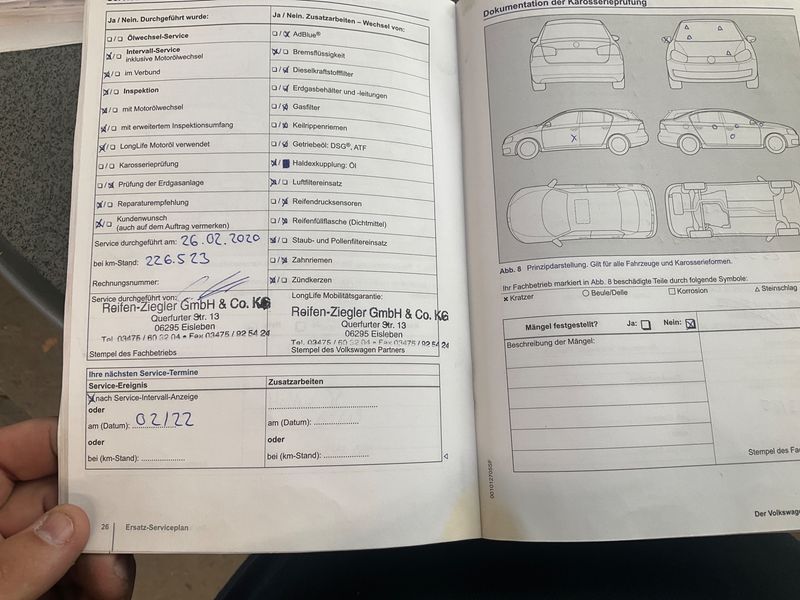 Ja / Nein. Durchgeführt wurde:
☐/☐ Ölwechsel-Service
☒/☐ Intervall-Service
inklusive Motorölwechsel
☒/☐ im Verbund
☒/☐ Inspektion
☒/☐ mit Motorölwechsel
☒/☐ mit erweitertem Inspektionsumfang
☒/☐ LongLife Motoröl verwendet
☐/☐ Karosserieprüfung
☐/☒ Prüfung der Erdgasanlage
☒/☐ Reparaturempfehlung
☒/☐ Kundenwunsch
(auch auf dem Auftrag vermerken)
Service durchgeführt am: 26.02.2020
bei km-Stand: 226.523
Rechnungsnummer:
Service durchgeführt von:
Reifen-Ziegler GmbH & Co. KG
Querfurter Str. 13
06295 Eisleben
Tel. 03475 / 60 32 04 • Fax 03475 / 92 54 24
Stempel des Fachbetriebs
Ja / Nein. Zusatzarbeiten – Wechsel von:
☐/☒ AdBlue®
☒/☐ Bremsflüssigkeit
☐/☒ Dieselkraftstofffilter
☐/☒ Erdgasbehälter und -leitungen
☐/☒ Gasfilter
☐/☒ Keilrippenriemen
☐/☒ Getriebeöl: DSG®, ATF
☒/■ Haldexkupplung: Öl
☒/☐ Luftfiltereinsatz
☐/☒ Reifendrucksensoren
☐/☒ Reifenfüllflasche (Dichtmittel)
☒/☐ Staub- und Pollenfiltereinsatz
☐/☒ Zahnriemen
☒/☐ Zündkerzen
LongLife Mobilitätsgarantie:
Reifen-Ziegler GmbH & Co. KG
Querfurter Str. 13
06295 Eisleben
Tel. 03475 / 60 32 04 • Fax 03475 / 92 54 24
Stempel des Volkswagen Partners
Ihre nächsten Service-Termine
Service-Ereignis
☒ nach Service-Intervall-Anzeige
oder
am (Datum): 02/22
oder
bei (km-Stand): ............
Zusatzarbeiten
..............................
am (Datum): ............
oder
bei (km-Stand): ............
26
Ersatz-Serviceplan
Dokumentation der Karosserieprüfung
Abb. 8 Prinzipdarstellung. Gilt für alle Fahrzeuge und Karosserieformen.
Ihr Fachbetrieb markiert in Abb. 8 beschädigte Teile durch folgende Symbole:
× Kratzer ○ Beule/Delle □ Korrosion △ Steinschlag
Mängel festgestellt? Ja: ☐ Nein: ☒
Beschreibung der Mängel:
Stempel des Fa
Der Volkswage